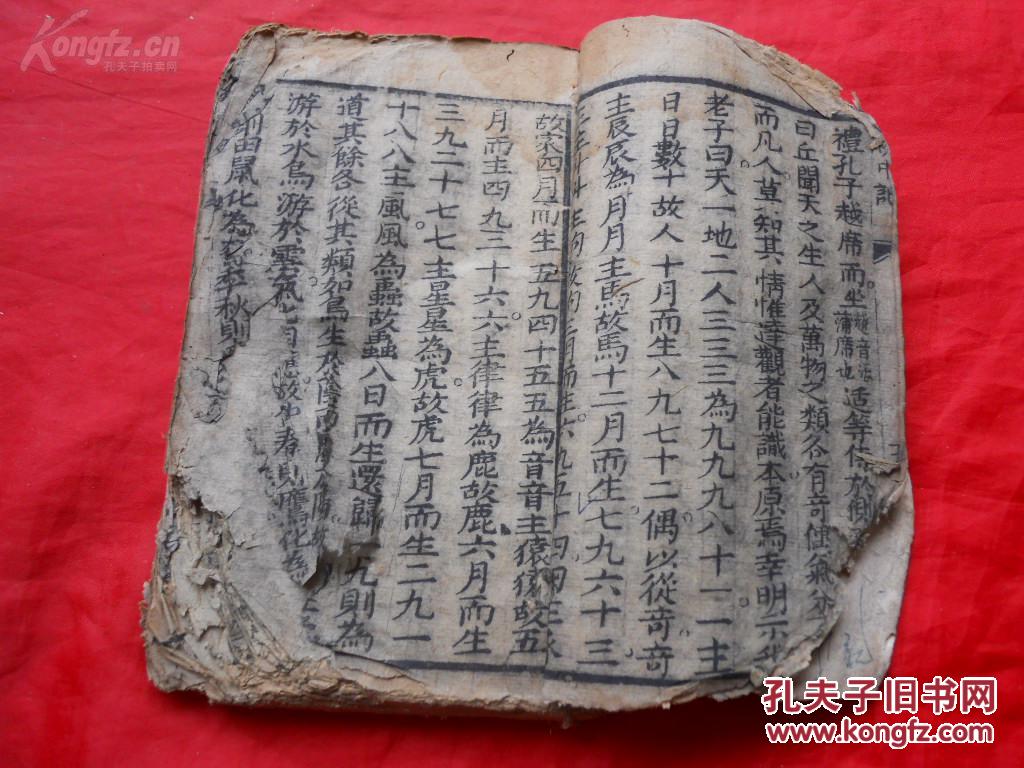 禮孔子越席而坐越音活蒲席也适等作於側
曰丘聞天之生人及萬物之類各有竒偶氣分
而凡人莫知其情惟達觀者能識本原焉幸明示我
老子曰天一地二人三三三為九九九八十一一主
日日數十故人十月而生八九七十二偶以從竒竒
主辰辰為月月主馬故馬十二月而生七九六十三
三主斗斗主狗故狗三月而生六九五十四四主
故家四月而生五九四十五五為音音主猿猿故五
月而生四九三十六六主律律為鹿故鹿六月而生
三九二十七七主星星為虎故虎七月而生二九一
十八八主風風為蟲故蟲八日而生還歸一九則為
道其餘各從其類如鳥生於陰而屬
游於水鳥游於雲 故仲春則鷹化為
田鼠化為 季秋則
Kongfz.cn
孔夫子拍卖网
孔夫子旧书网
WWW.KONGFZ.COM